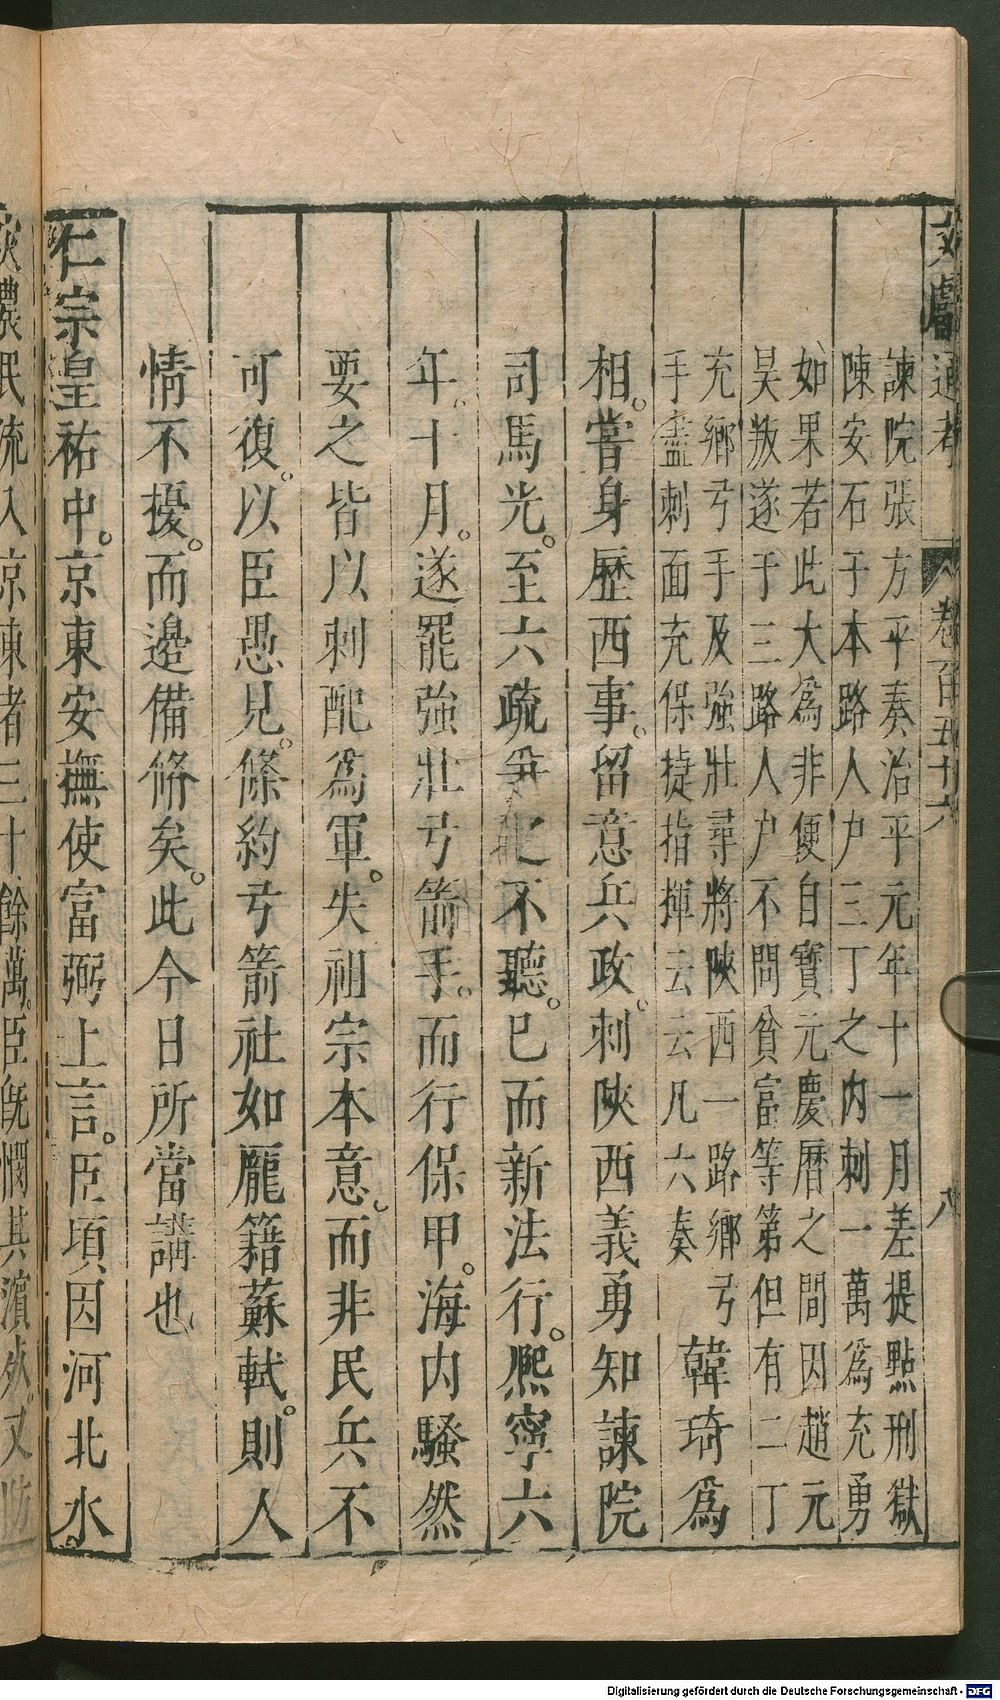 文獻通考 卷百五十六 八
諫院張方平奏治平元年十一月差提點刑獄
陳安石于本路人户三丁之內刺一萬爲充勇
如果若此大爲非便自寶元慶曆之間因趙元
昊叛遂于三路人户不問貧富等第但有二丁
充鄉弓手及強壯尋將陝西一路鄉弓
手盡刺面充保捷指揮云云凡六奏
韓琦爲
相。嘗身歷西事。留意兵政。刺陝西義勇知諫院
司馬光。至六疏爭之不聽。已而新法行。熈寧六
年。十月。遂罷強壯弓箭手。而行保甲。海内騷然
要之皆以刺配爲軍。失祖宗本意。而非民兵不
可復。以臣愚見。條約弓箭社如龐籍蘇軾。則人
情不擾。而邊備脩矣。此今日所當講也
仁宗皇祐中。京東安撫使富弼上言。臣頃因河北水
災農民流入京東者三十餘萬。臣旣憫其濵死。又防
Digitalisierung gefördert durch die Deutsche Forschungsgemeinschaft - DFG